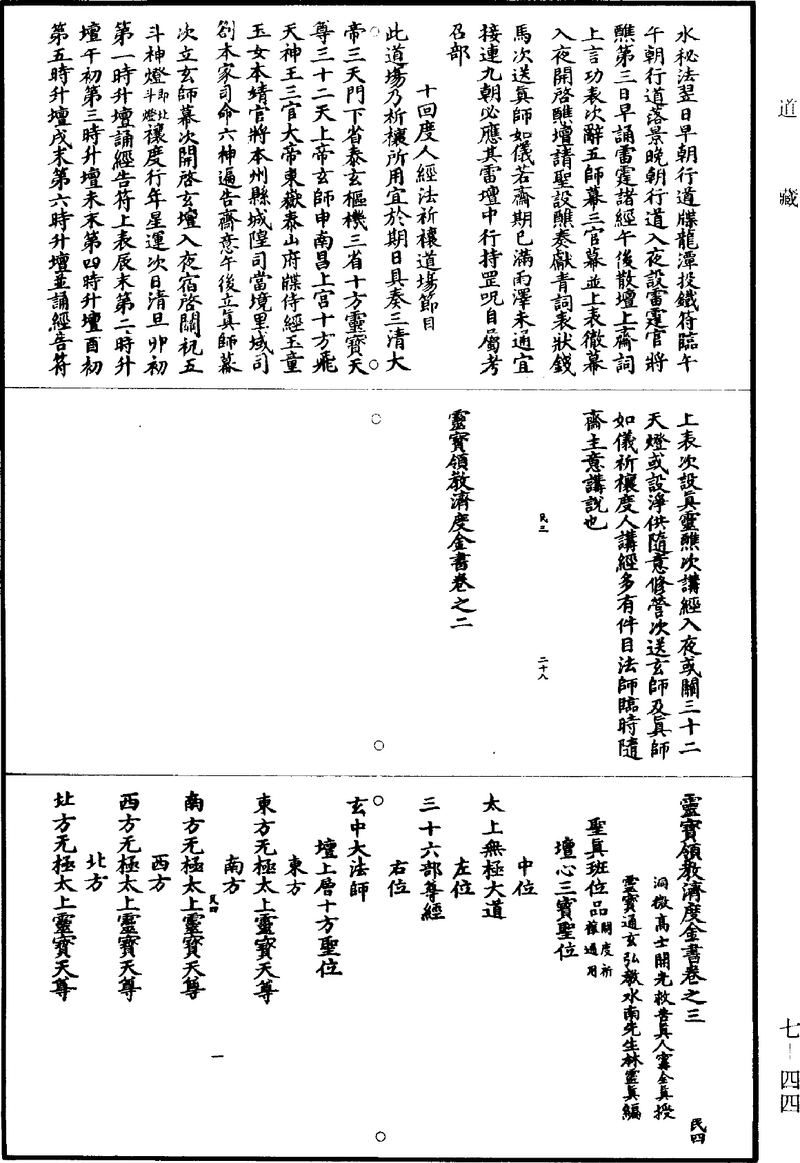 道藏
七—四四
水秘法翌日早朝行道牒龍潭投鐵符臨午
午朝行道落景晚朝行道入夜設雷霆官將
醮第三日早誦雷霆諸經午後散壇上齋詞
上言功表次辭五師幕三官幕並上表徹幕
入夜開啓醮壇請聖設醮奏獻青詞表狀錢
馬次送真師如儀若齋期已滿雨澤未通宜
接連九朝必應其雷壇中行持罡呪自屬考
召部
十回度人經法祈禳道場節目
此道場乃祈禳所用宜於期日具奏三清大
帝三天門下省泰玄樞機三省十方靈寶天
尊三十二天上帝玄師申南昌上宫十方飛
天神王三官大帝東嶽泰山府牒侍經玉童
玉女本靖官將本州縣城隍司當境里域司
劄本家司命六神遍告齋意午後立真師幕
次立玄師幕次開啓玄壇入夜宿啓關祝五
斗神燈即北斗燈禳度行年星運次日清旦卯初
第一時升壇誦經告符上表辰末第二時升
壇午初第三時升壇未末第四時升壇酉初
第五時升壇戌末第六時升壇並誦經告符
上表次設真靈醮次講經入夜或關三十二
天燈或設淨供隨意修營次送玄師及真師
如儀祈禳度人講經多有件目法師臨時隨
齋主意講說也
民三
二十八
靈寶領教濟度金書卷之二
靈寶領教濟度金書卷之三
民四
洞微高士開光救苦真人甯全真授
靈寶通玄弘教水南先生林靈真編
聖真班位品開度祈禳通用
壇心三寶聖位
中位
太上無極大道
左位
三十六部尊經
右位
玄中大法師
壇上層十方聖位
東方
東方无極太上靈寶天尊
南方
民四
一
南方无極太上靈寶天尊
西方
西方无極太上靈寶天尊
北方
北方无極太上靈寶天尊